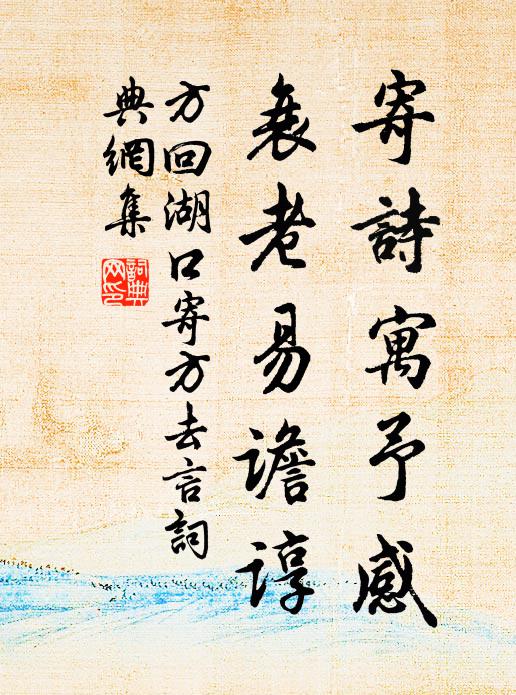 寄詩寓予感
衰老易譫諄
方回湖口寄方去言詞
典網集
詞典
网印